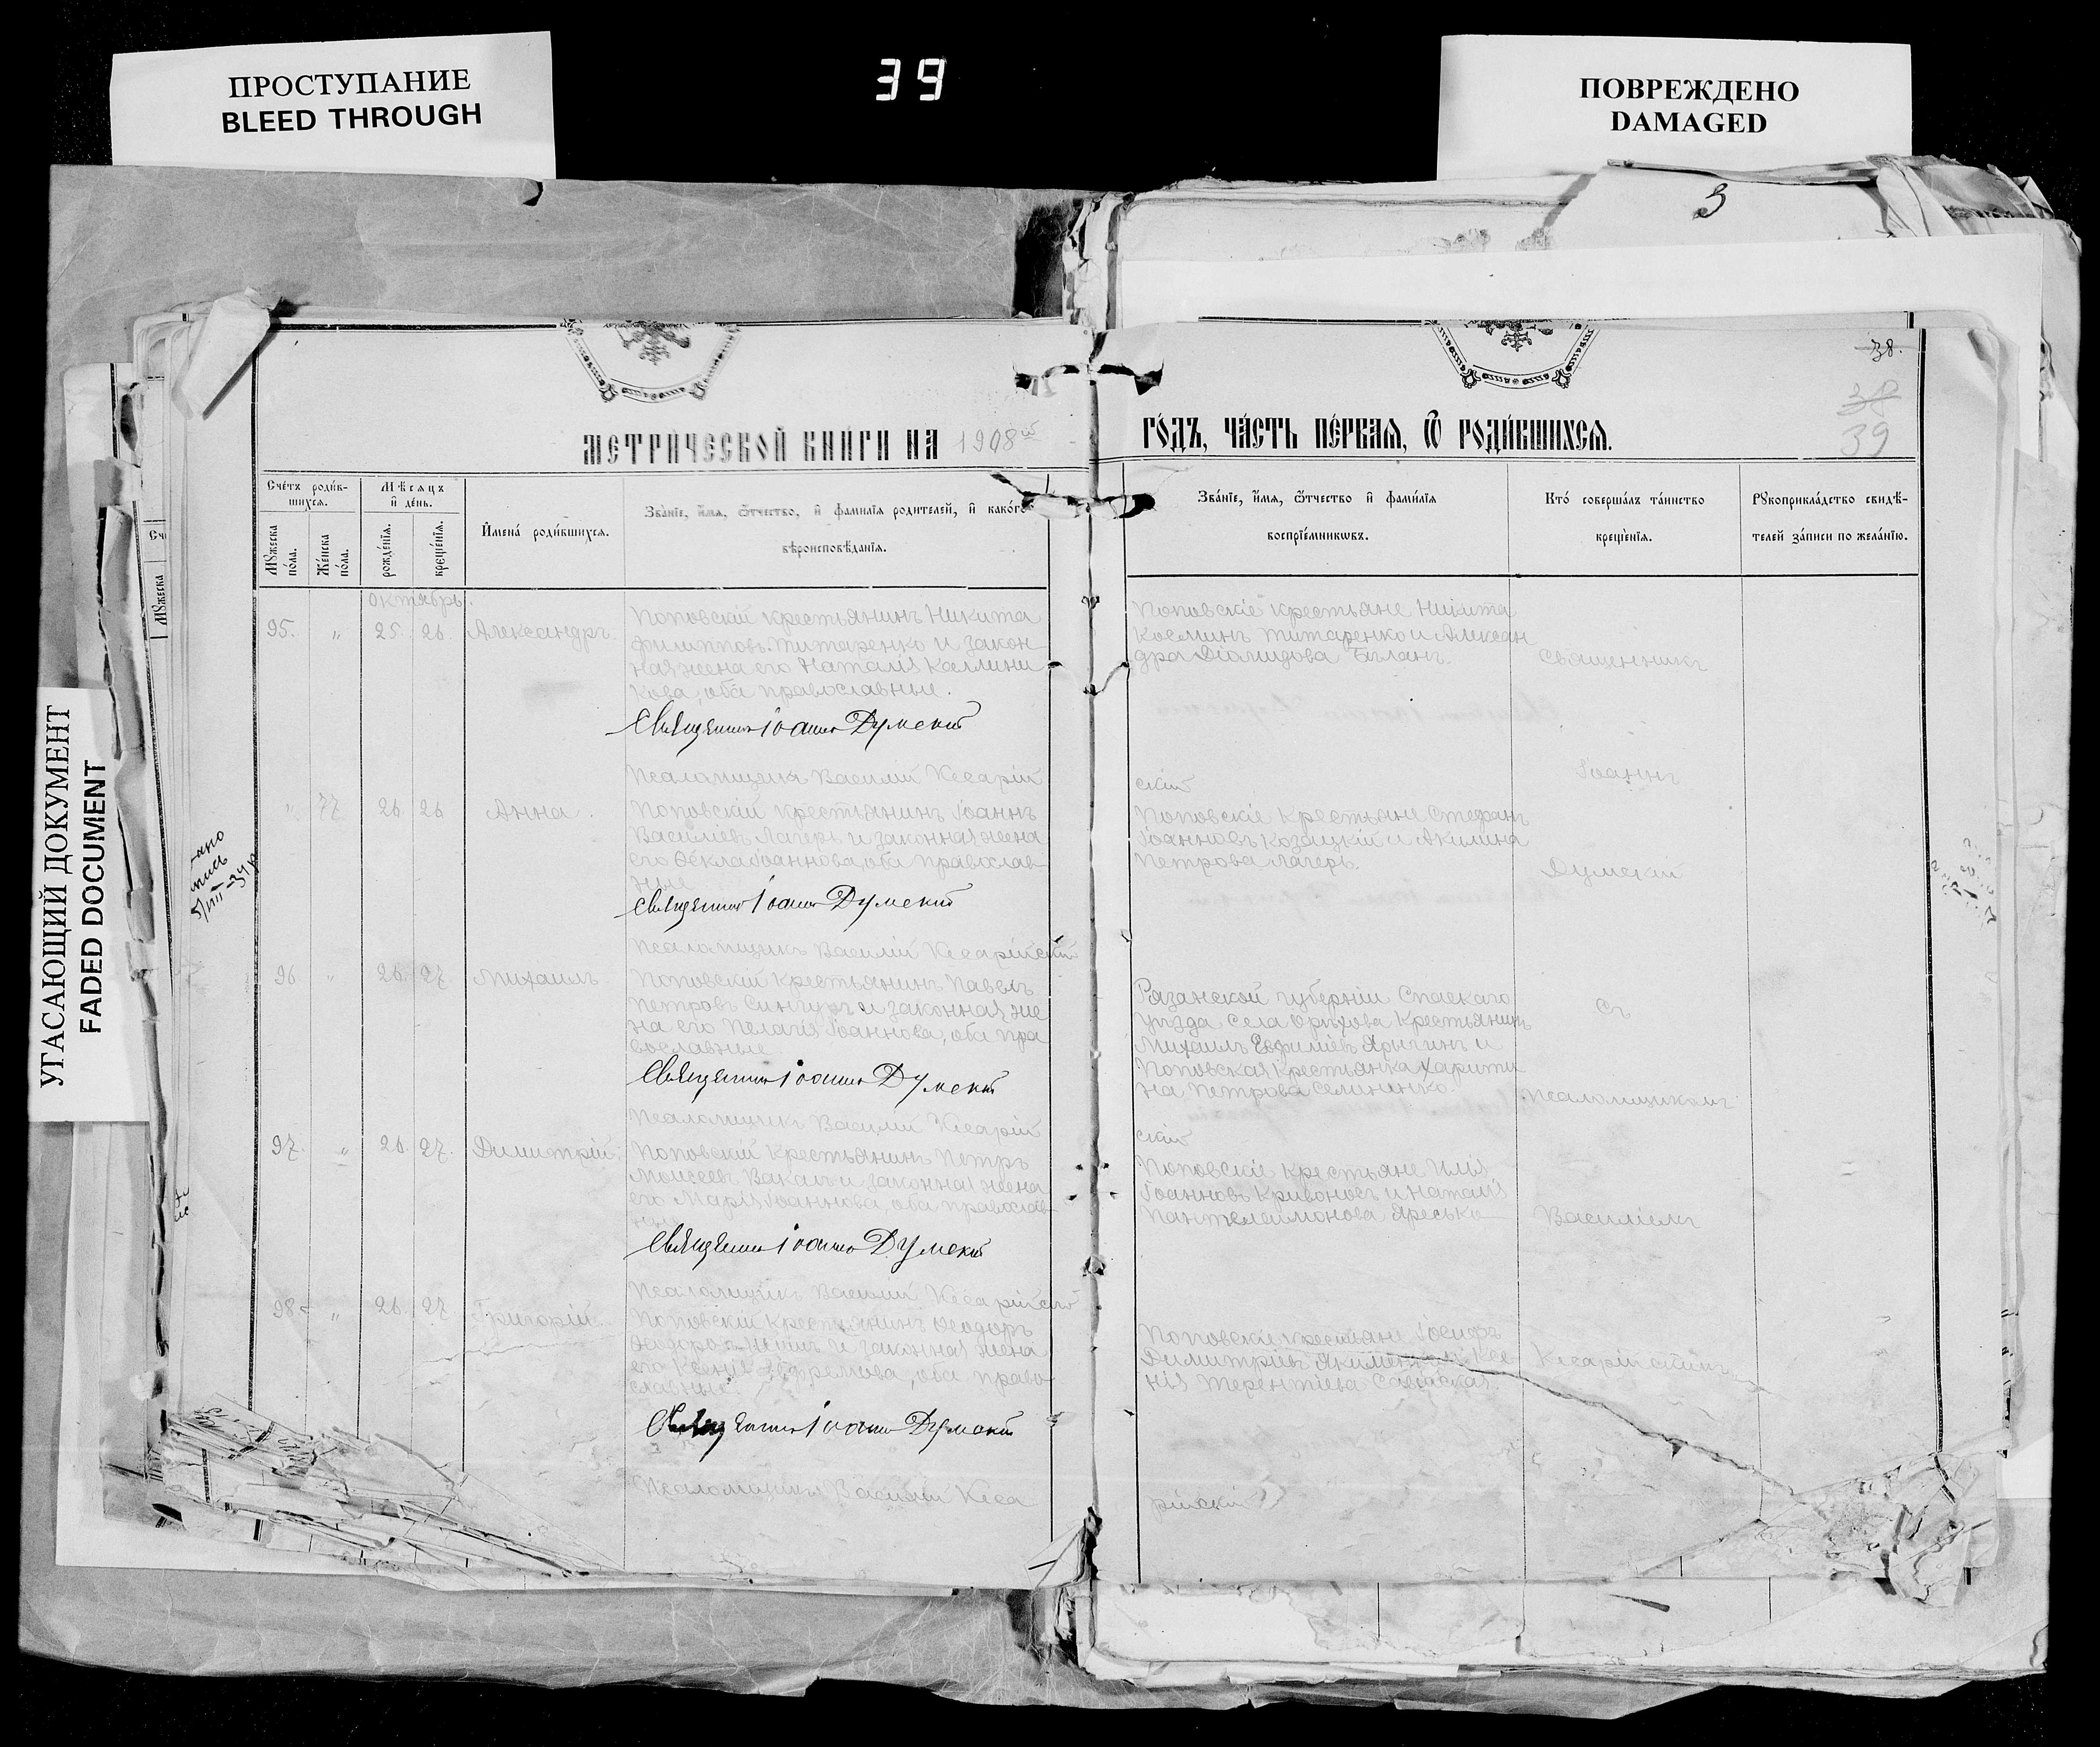 ПРОСТУПАНИЕ
BLEED THROUGH
39
ПОВРЕЖДЕНО
DAMAGED
3
УГАСАЮЩИЙ ДОКУМЕНТ
FADED DOCUMENT
38.
38
39
МЕТРИЧЕСКОЙ КНИГИ НА 1908
ГОДЪ, ЧАСТЬ ПЕРВАЯ, Ѿ РОДИВШИХСЯ.
Счетъ родив-
шихся.
Мужеска
пола.
Женска
пола.
Мѣсяцъ
и день.
рожденія.
крещенія.
Имена родившихся.
Званіе, имя, ѿтчество, и фамилія родителей, и какого
вѣроисповѣданія.
Званіе, имя, ѿтчество и фамилія
воспріемниковъ.
Кто совершалъ таинство
крещенія.
Рукоприкладство свидѣ-
телей записи по желанію.
октябрь.
95. " 25. 26. Александръ.
Поповскій крестьянинъ Никита
Филипповъ Титаренко и закон
ная жена его Наталія Каллини
кова, оба православные.
Священникъ Іоаннъ Думскій
Псаломщикъ Василій Кесарій
Поповскіе крестьяне Никита
Косминъ Титаренко и Алексан
дра Діомидова Бѣланъ.
Священникъ
Іоаннъ
скій
" 77 26 26 Анна.
Поповскій крестьянинъ Іоаннъ
Василіевъ Лагерь и законная жена
его Ѳекла Іоаннова, оба православ-
ные
Священникъ Іоаннъ Думскій
Псаломщикъ Василій Кесарійскій
Поповскіе Крестьяне Стефанъ
Іоанновъ Козацкій и Акилина
Петрова Лагерь.
Думскій
96 " 26. 27. Михаилъ
Поповскій Крестьянинъ Павелъ
Петровъ Сингуръ и законная же
на его Пелагія Іоаннова, оба пра
вославные
Священникъ Іоаннъ Думскій
Псаломщикъ Василій Кесарій
Рязанской губерніи Спаскаго
уѣзда села Орѣхова Крестьянинъ
Михаилъ Евфиміевъ Ярыгинъ и
Поповская Крестьянка Харити
на Петрова Семененко.
съ
псаломщикомъ
скій
97. " 26. 27. Димитрій.
Поповскій Крестьянинъ Петръ
Моисеевъ Вакалъ и законная жена
его Марія Іоаннова, оба православ-
ные
Священникъ Іоаннъ Думскій
Псаломщикъ Василій Кесарійскій
Поповскіе крестьяне Илія
Іоанновъ Кривоносъ и Наталія
Пантелеимонова Яресько
Василіемъ
98 " 26. 27 Григорій.
Поповскій Крестьянинъ Ѳеодоръ
и законная жена
его Ксенія Ефремова, оба право-
славные.
Священникъ Іоаннъ Думскій
Псаломщикъ Василій Кеса
Поповскіе крестьяне Іосифъ
Димитріевъ Якименко и Ксе-
нія Терентіева Савдаская.
Кесарійскимъ
рійскій